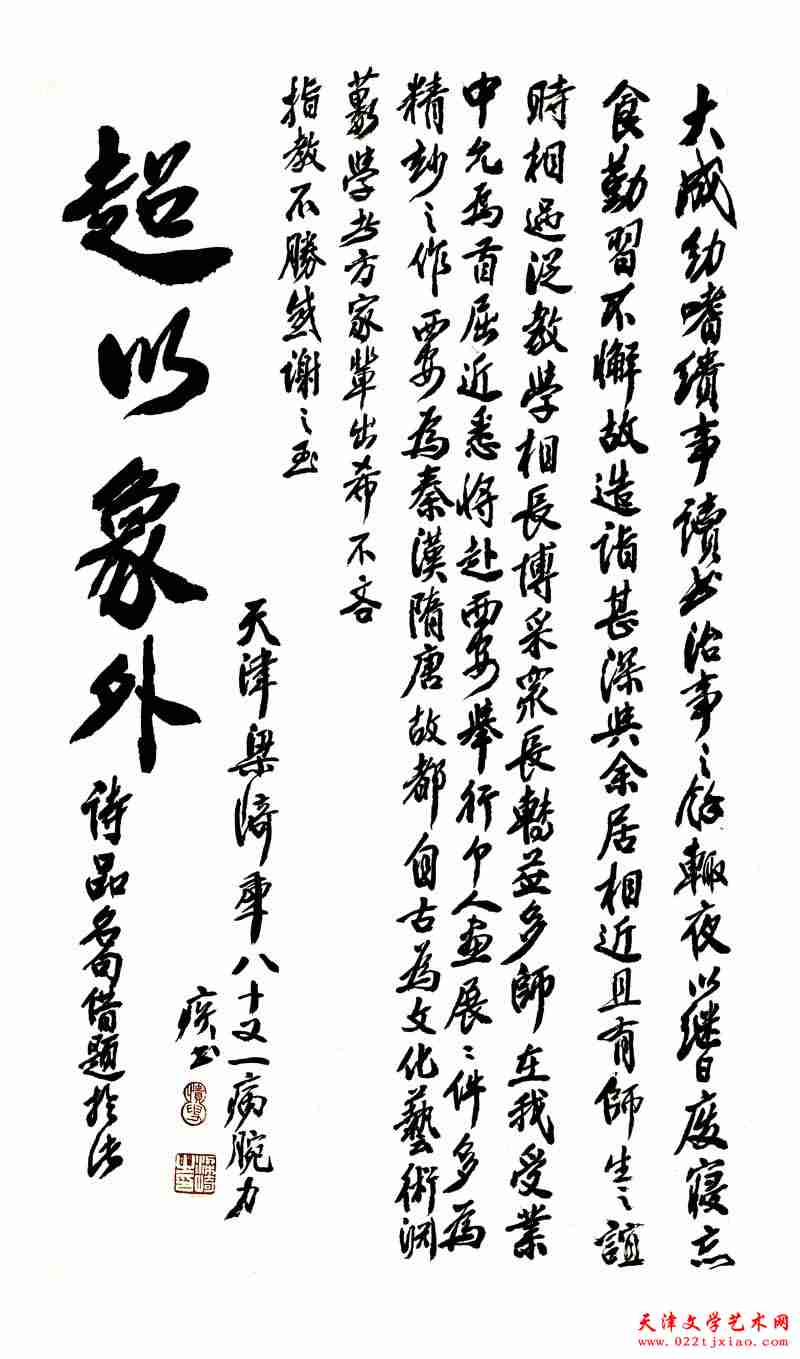 大成幼嗜繢事讀书治事之餘輒夜以繼日废寝忘
食勤習不懈故造詣甚深與余居相近且有師生之誼
時相過從教學相長博采衆長轉益多師在我受業
中允為首屈近悉將赴西安舉行个人畫展之件多為
精妙之作西安為秦漢隋唐故都自古為文化藝術渊
薮學者方家輩出希不吝
指教不勝感謝之至
天津梁崎年八十又一病腕力
疾书
超以象外
诗品名句借題於此
天津文学艺术网
www.022tjxiao.com